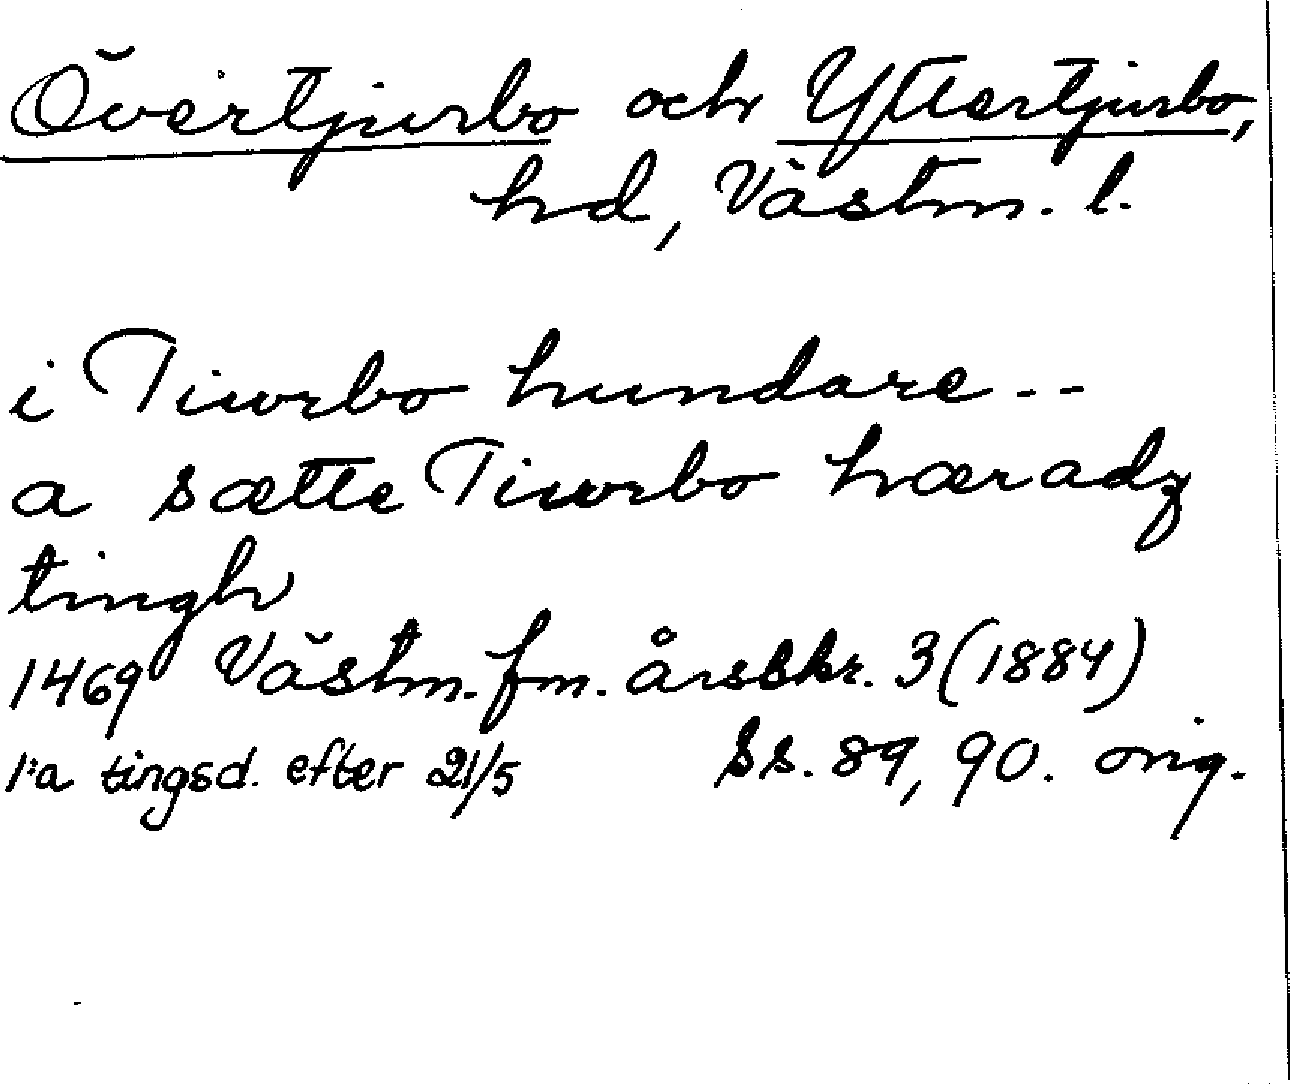 Övertjurbo och Yttertjurbo,
hd, Västm. l.
i Tiwrbo hundare - -
a sætte Tiwrbo hæradz
tingh
1469 Västm. fm. årsskr. 3 (1884)
1:a tingsd. efter 21/5 ss. 89, 90. orig.